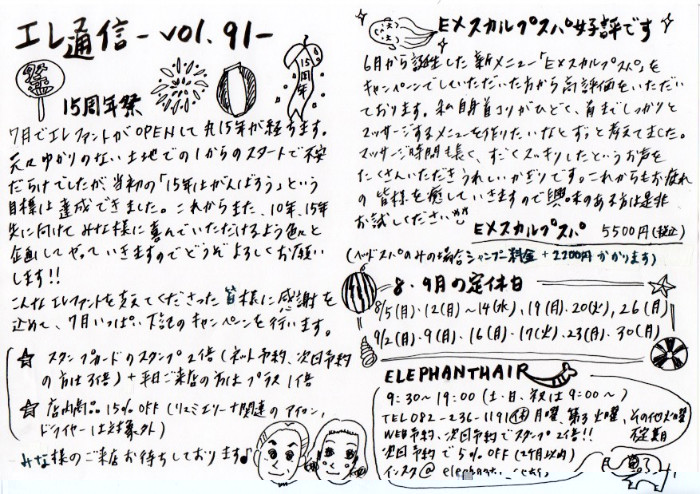 エレ通信-vol.91-
祭
15周年
15周年祭
7月でエレファントがOPENして丸15年が経ちます。
元々ゆかりのない土地での1からのスタートで不安
だらけでしたが、当初の「15年はがんばろう」という
目標は達成できました。これからまた、10年、15年
先に向けてみな様に喜んでいただけるよう色々と
企画してやっていきますのでどうぞよろしくお願い
します!!
こんなエレファントを支えてくださった皆様に感謝を
込めて、7月いっぱい下記のキャンペーンを行います。
☆ スタンプカードのスタンプ2倍(ネット予約、次回予約
の方は3倍)+平日ご来店の方はプラス1倍
☆ 店内商品15%OFF(リュミエリーナ関連のアイロン、
ドライヤーは対象外)
みな様のご来店お待ちしております♪
EXスカルプスパ好評です
6月から誕生した新メニュー「EXスカルプスパ」を
キャンペーンでしていただいた方から高評価をいただい
ております。私自身首コリがひどくて、首までしっかりと
マッサージするメニューを作りたいなとずっと考えてました。
マッサージ時間も長く、すごくスッキリしたというお声を
たくさんいただきうれしいかぎりです。これからもお疲れ
の皆様を癒していきますので興味のある方は是非
お試しください
EXスカルプスパ 5500円(税込)
(ヘッドスパのみの場合シャンプー料金+2200円かかります)
8・9月の定休日
8/5(月)・12(月)~14(水)、19(月)・20(火)、26(月)
9/2(月)・9(月)・16(月)・17(火)・23(月)・30(月)
ELEPHANTHAIR
9:30~19:00(土・日・祝は9:00~)
TEL082-236-1191 休 月曜、第3火曜、その他火曜
不定期
WEB予約、次回予約でスタンプ2倍!!
次回予約で5%OFF(2ヶ月以内)
インスタ@elephant